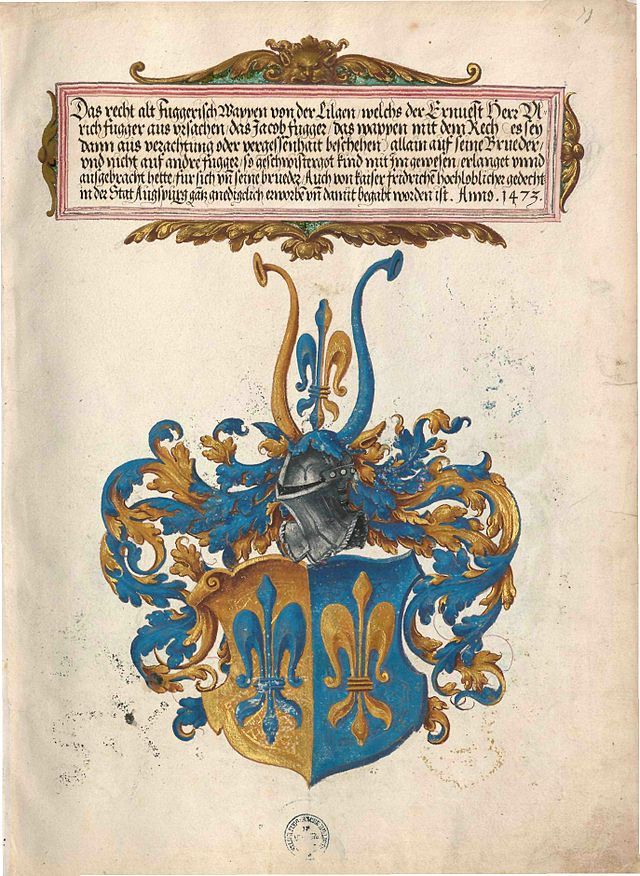 Das recht alt Fuggerisch Wappen von der Lilgen / welchs der Ernuest Herr Vl
rich fugger aus vrsachen / das Jacob fugger / das wappen mit dem Rech / es sey
dann aus verachtung oder vergessenhait beschehen / allain auf seine Brueder /
vnd nicht auf andre fugger / so geschwistergot kind mit jm gewesen / erlanget vnnd
ausgebracht hette / für sich vn̄ seine brueder, Auch von kaiser fridrichē hochloblicher gedecht:
in der Stat Augspurg gātz gnedigelich erworbē vn̄ damit begabt worden ist. Anno. 1473.